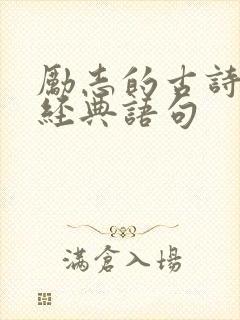 勵志的古詩
經典語句
滿倉入場